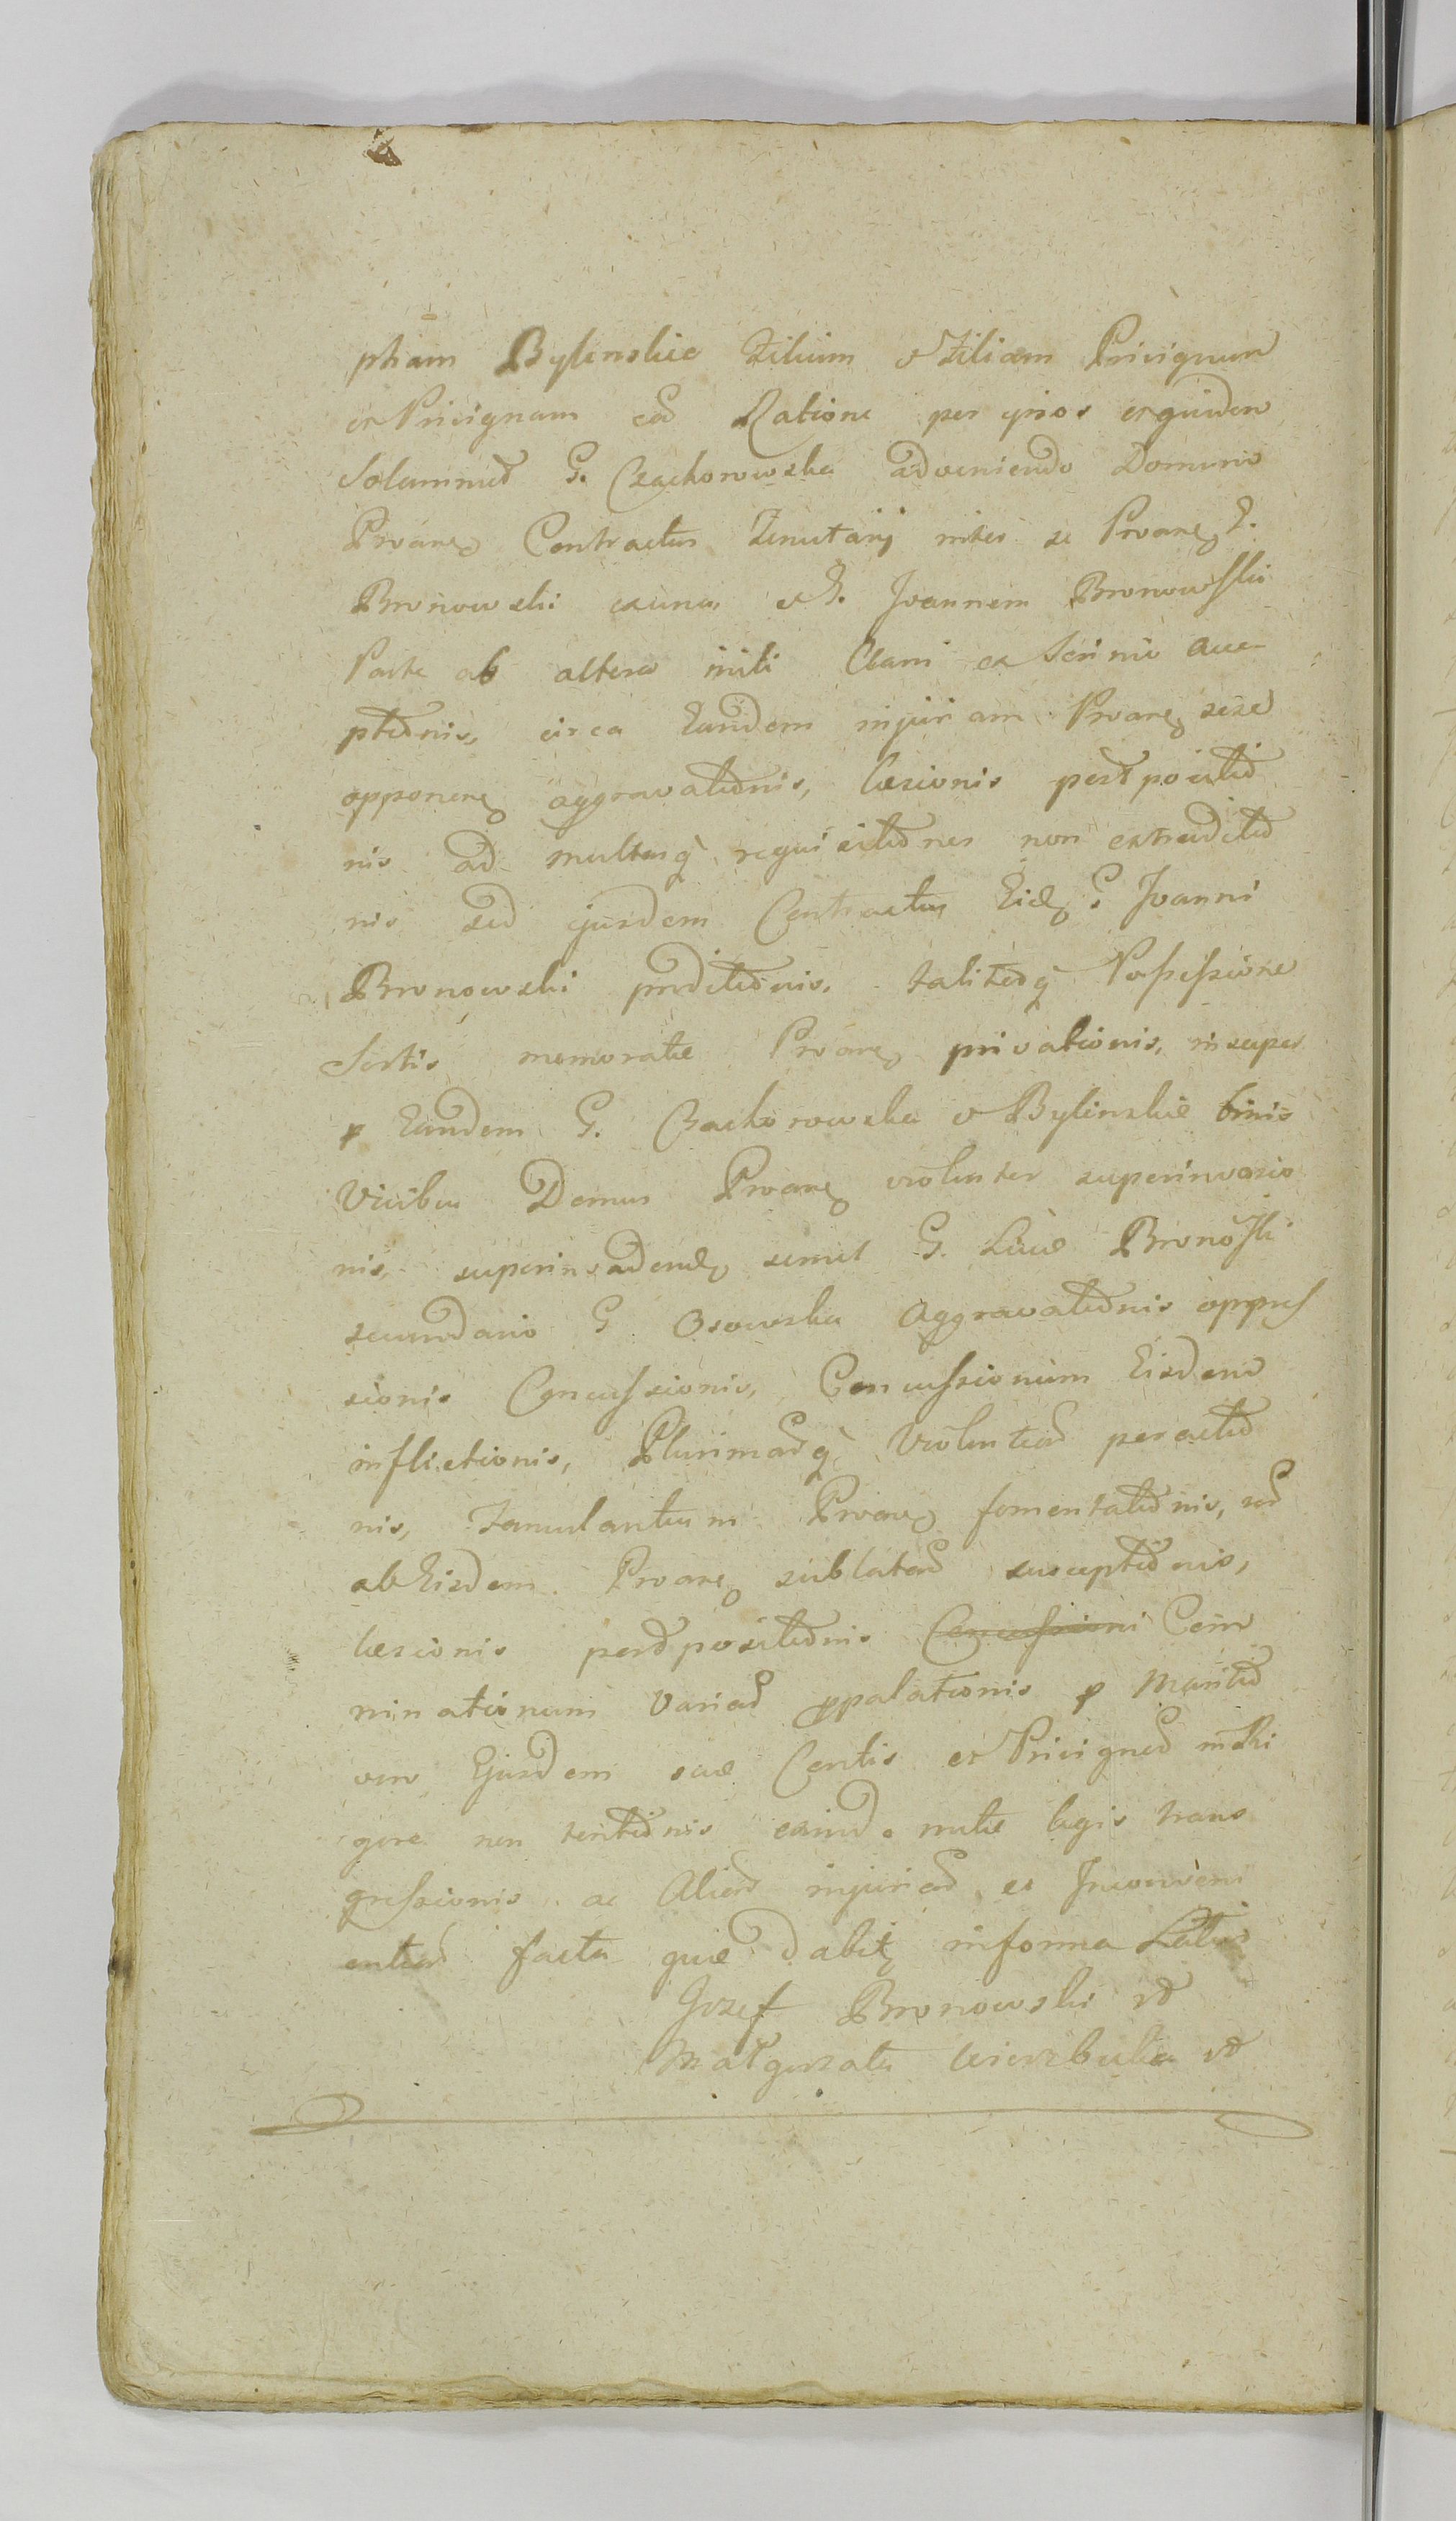 pham Bylinskie Filium et Filiam Privignum
et Privignam ea Ratione per ipsos erguidem
Solummed G. Czachorowska adveniendo Domum
Proare Contractus Tenutarij inter se Proare G.
Bronowski ex una et G. Joannem Bronowski
Parte ab altera initi Clam ex Scrinio acce
ptionis, circa Eandem injuriam Proare sese
opponen aggravationis, læsionis perdpositio
nis ad multasq requisitiones non extraditio
nis sed ejusdem Contractus Eid G Joanni
Bronowski prdditionis, taliterq Possessione
Sortis memoratæ Proare privationis, insuper
p Eandem G. Czachorowska et Bylinskie binis
Vicibus Domus Proare violenter superinvasio
nis, superinvadende semel G. Luce Bronowski
secundario G Osowska Aggravationis oppres
sionis Concussionis, Concussionum Eisdem
inflictionis, Plurimarq Violentiar peractio
nis, Famulantium Proare fomentationis, rer
ab Eisdem Proare sublatar susceptionis,
læsionis perdpositionis Concussioni Com
minationum Variar ppalationis p Maritu
vero Ejusdem suæ Contis et Privignor
gere non tentionis exind mutæ legis trans
gressionis ac Aliar injuriar et Inconveni
entiar facta quæ dabit informa Latius
Jozef Bronowski
Małgorzata Wierzbicka